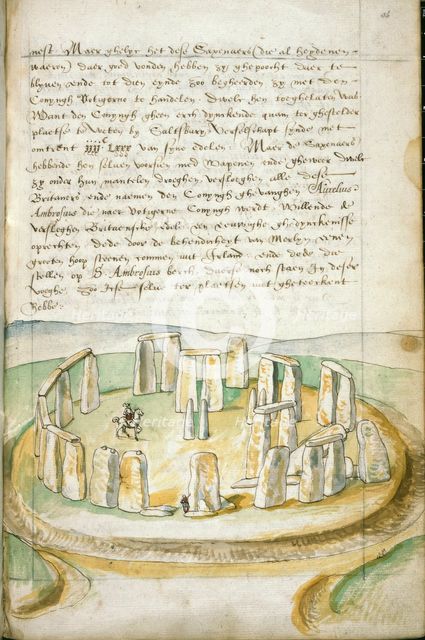 nest Maer ghelyc het dese Saxenaers (die al heydenen
waeren) daer goed vonden hebben zy ghepoocht daer te
blyven ende tot dien eynde zoo begheerden zy met den
Conyngh Votigerne te handelen. Dwelc hen toeghelaten was
Want den Conyngh gheen erch dynckende quam ter ghestelder
plaetse te weten by Saltsbury Verselschapt synde met
omtrent iiiic Lxxx van syne edelen. Maer de Saxenaers
hebbende hen selven voorsien met wapenen ende gheweer dwelc
zy onder hun mantelen droeghen versloeghen alle dese
Britaners ende naemen den Conyngh ghevanghen. Aurelius
Ambrosius die naer Votigerne Conyngh werdt Willende de
versleghen Britaensche edele een eeuwighe ghedynckenisse
oprechten dede door de behendicheyt van Merlyn eenen
grooten hoop steenen commen uut Irland ende dede die
stellen op S. Ambrosius berch, diversc noch staen in deser
voeghe. Zoo icse selve ter plaetsen uut gheteeckent
hebbe.
Heritage
Heritage